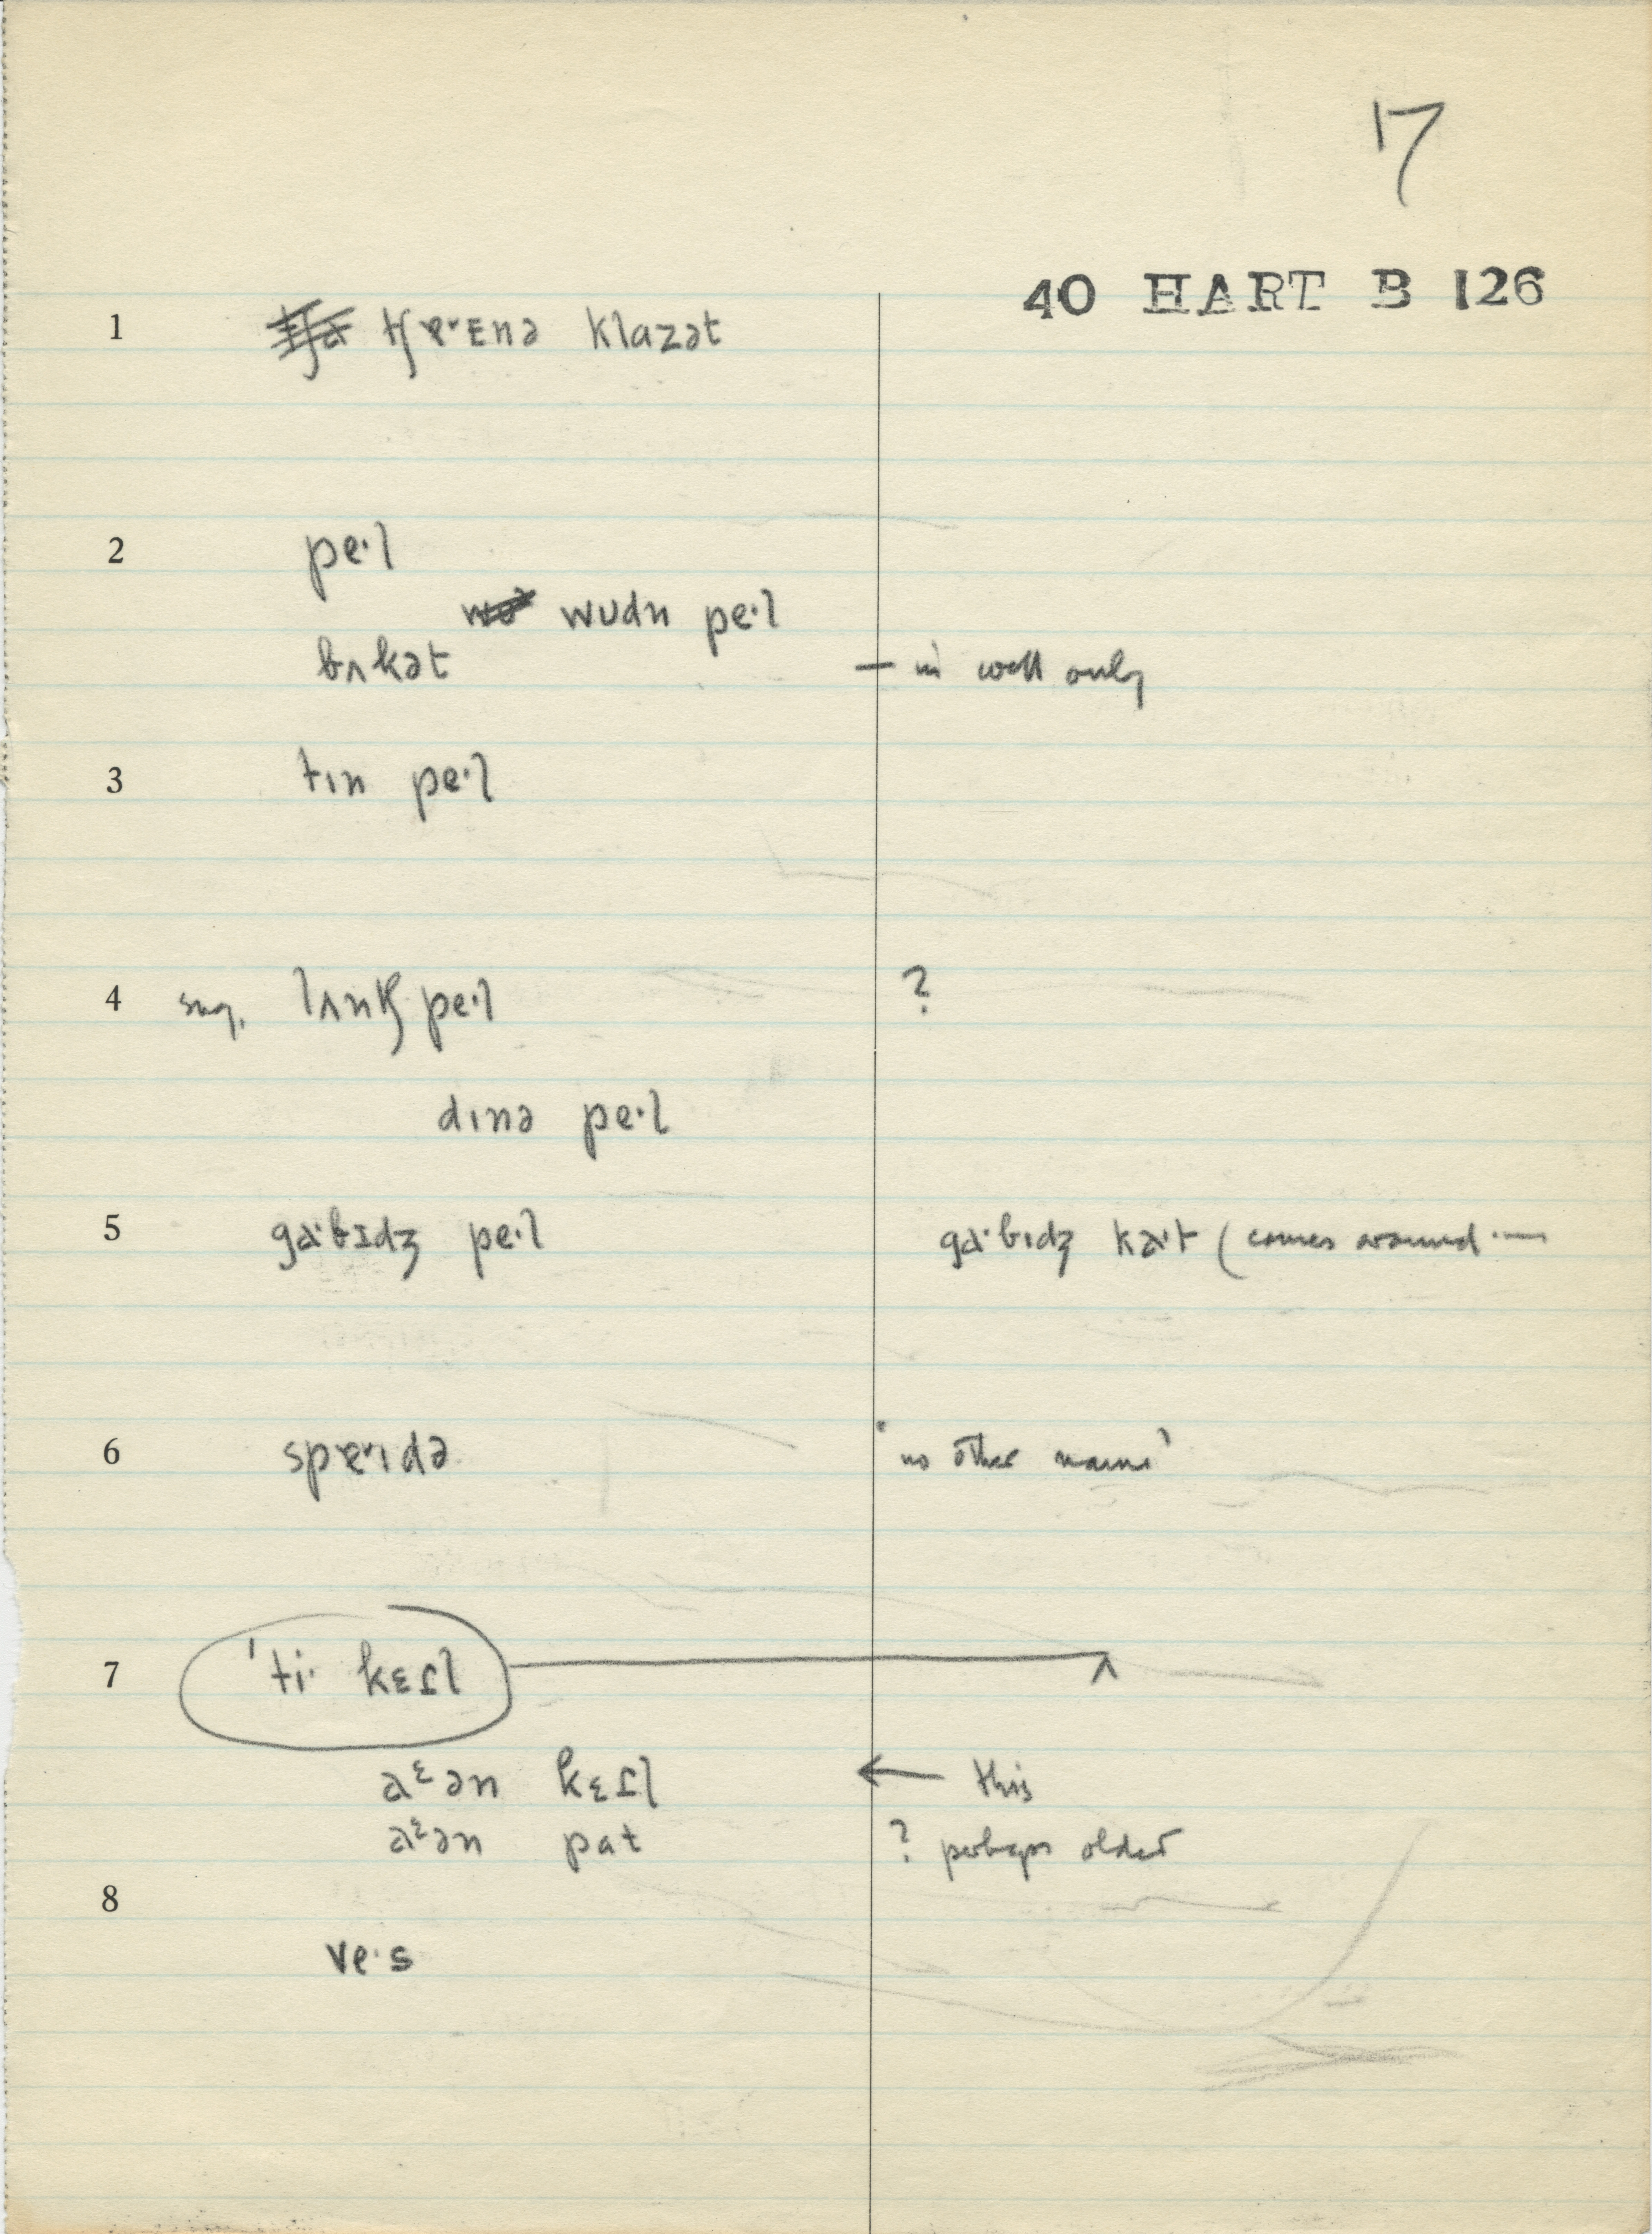 17
40 HART B 126
1 tʃɐ·ɪnə klazət
2 pe·l
wʊdn pe·l
bʌkət — in well only
3 tɪn pe·l
4 sug. lʌntʃ pe·l ?
dɪnə pe·l
5 ga·bɪdʒ pe·l ga·bɪdʒ ka·t (comes around —
6 spɐ·ɪdə 'no other name'
7 'ti· kɛtl
aᵋən kɛtl ← this
aᵋən pat ? perhaps older
8
ve·s